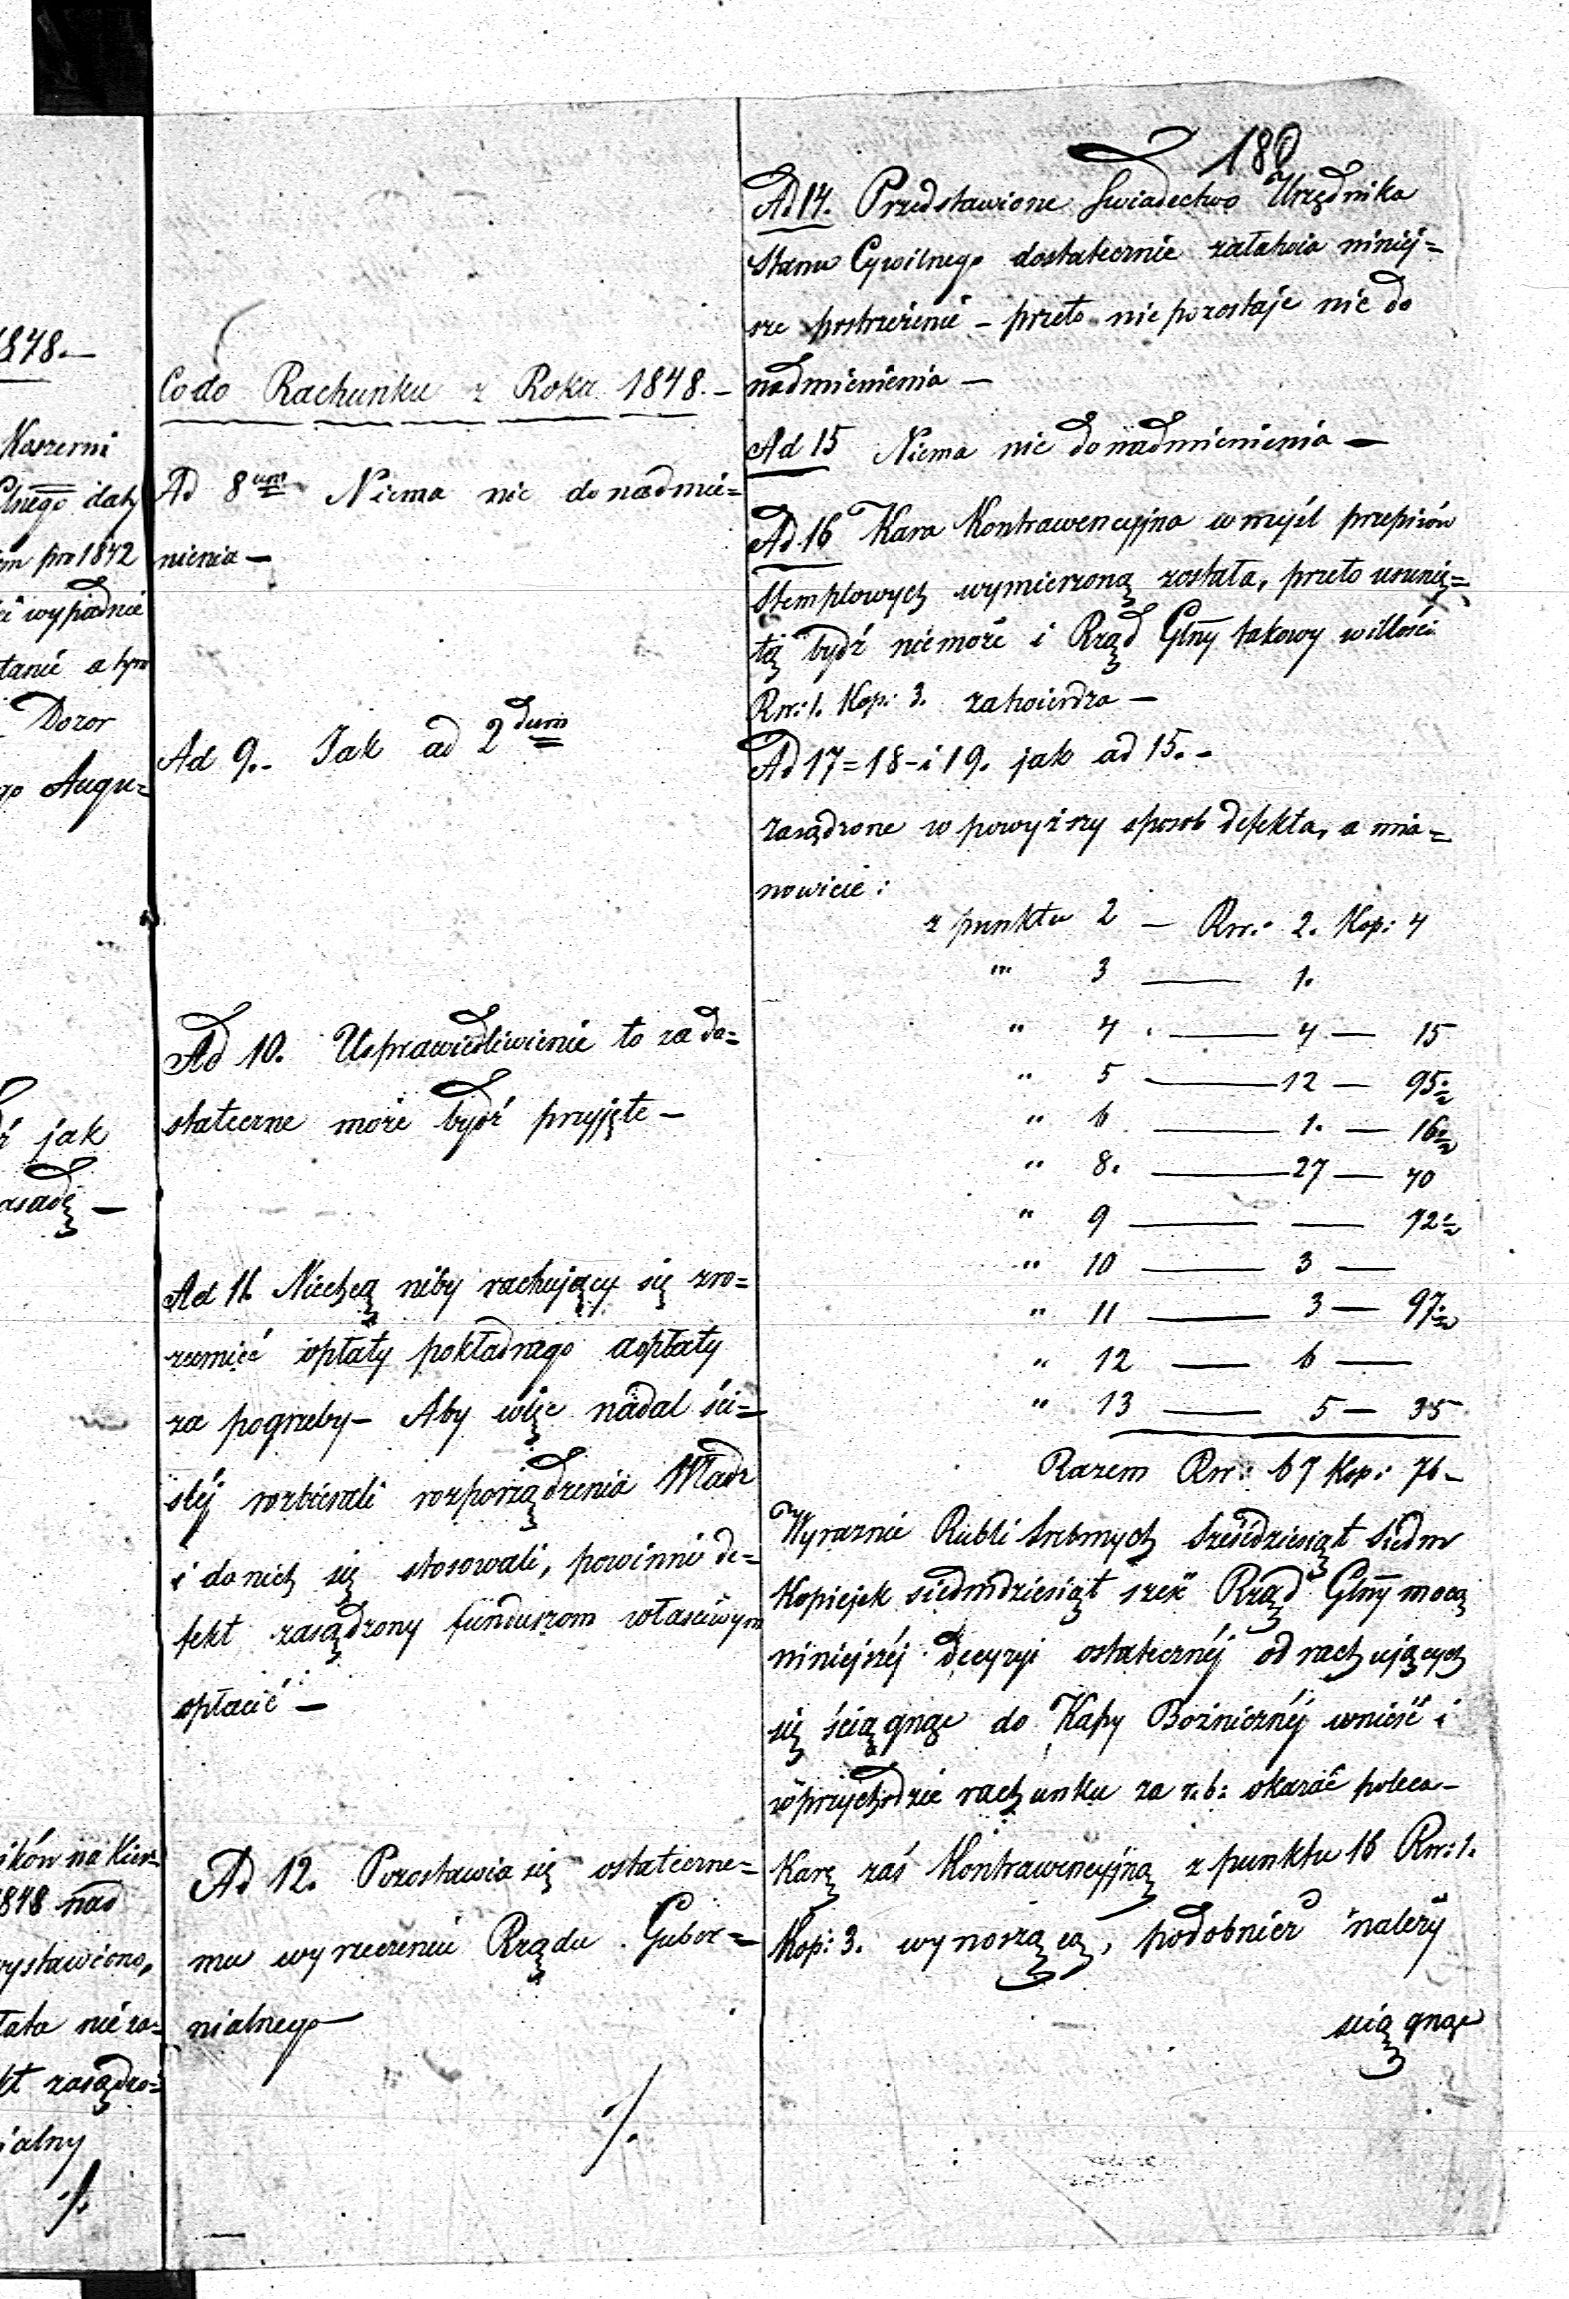 1848.—
Kaszerni
Glnego daty
pro 1842
wypadnie
a tym
Dozor
go Augu=
jak
asadę —
ików na Kier=
1848 nad
wystawiono,
nie za=
kt zasądzo=
ialny
./.
Co do Rachunku z Roku 1848.—
Ad 8um Niema nic do nadmie=
nienia —
Ad 9.- Jak ad 2dum
Ad 10. Usprawiedliwienie to za do=
stateczne może bydź przyjęte —
Ad 11. Niechcą niby rachujący się zro=
zumieć opłaty pokładnego a opłaty
za pogrzeby — Aby więc nadal ści=
śléj rozbierali rozporządzenia Władz
i do nich się stosowali, powinni de=
fekt zasądzony funduszom właściwym
opłacić —
Ad 12. Pozostawia się ostateczne=
mu wyrzeczeniu Rządu Guber=
nialnego
./.
180
Ad 14. Przedstawione Swiadectwo Urzędnika
Stanu Cywilnego dostatecznie załatwia niniej=
sze postrzeżenie — przeto nie pozostaje nic do
nadmienienia —
Ad 15 Niema nic do nadmienienia —
Ad 16 Kara Kontrawencyjna w myśl przepisów
Stemplowych wymierzoną została, przeto usunię=
tą bydź niemoże i Rząd Glny takowy w illości
Rsr: 1. Kop: 3. zatwierdza —
Ad 17 = 18 - i 19. jak ad 15. -
Zasądzone w powyższy sposob defekta, a mia=
nowicie:
z punktu 2 — Rsr: 2. Kop: 4
" 3 — 1.
" 4 — 4 — 15
" 5 — 12 — 95½
" 6 — 1. — 16½
" 8. — 27 — 40
" 9 — — 72½
" 10 — 3 —
" 11 — 3 — 97½
" 12 — 6 —
" 13 — 5 — 35
Razem Rsr: 67 Kop: 76 —
Wyraznie Rubli Srebrnych Sześćdziesiąt Siedm
Kopiejek siedmdziesiąt szesć Rząd Glny mocą
niniejszéj decyzyi ostatecznéj od rachujących
się ściągnąc do Kassy Boźniczнéj wnieść i
w przychodzie rachunku za r. b: okazać poleca —
Karę zaś Kontrawencyjną z punktu 16 Rsr: 1.
Kop: 3. wynoszącą, podobnież należy
sciągnąc